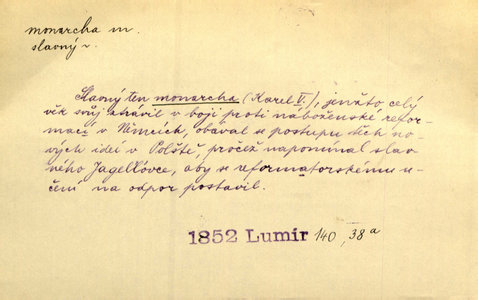 monarcha m.
slavný v.
Slavný ten monarcha (Karel V.), jenžto celý
věk svůj ztrávil v boji proti náboženské refor-
maci v Němcích, obával se postupu těch no-
vých ideí v Polště, pročež napomínal slav-
ného Jagellovce, aby se reformatorskému u-
čení na odpor postavil.
1852 Lumír 140, 38a